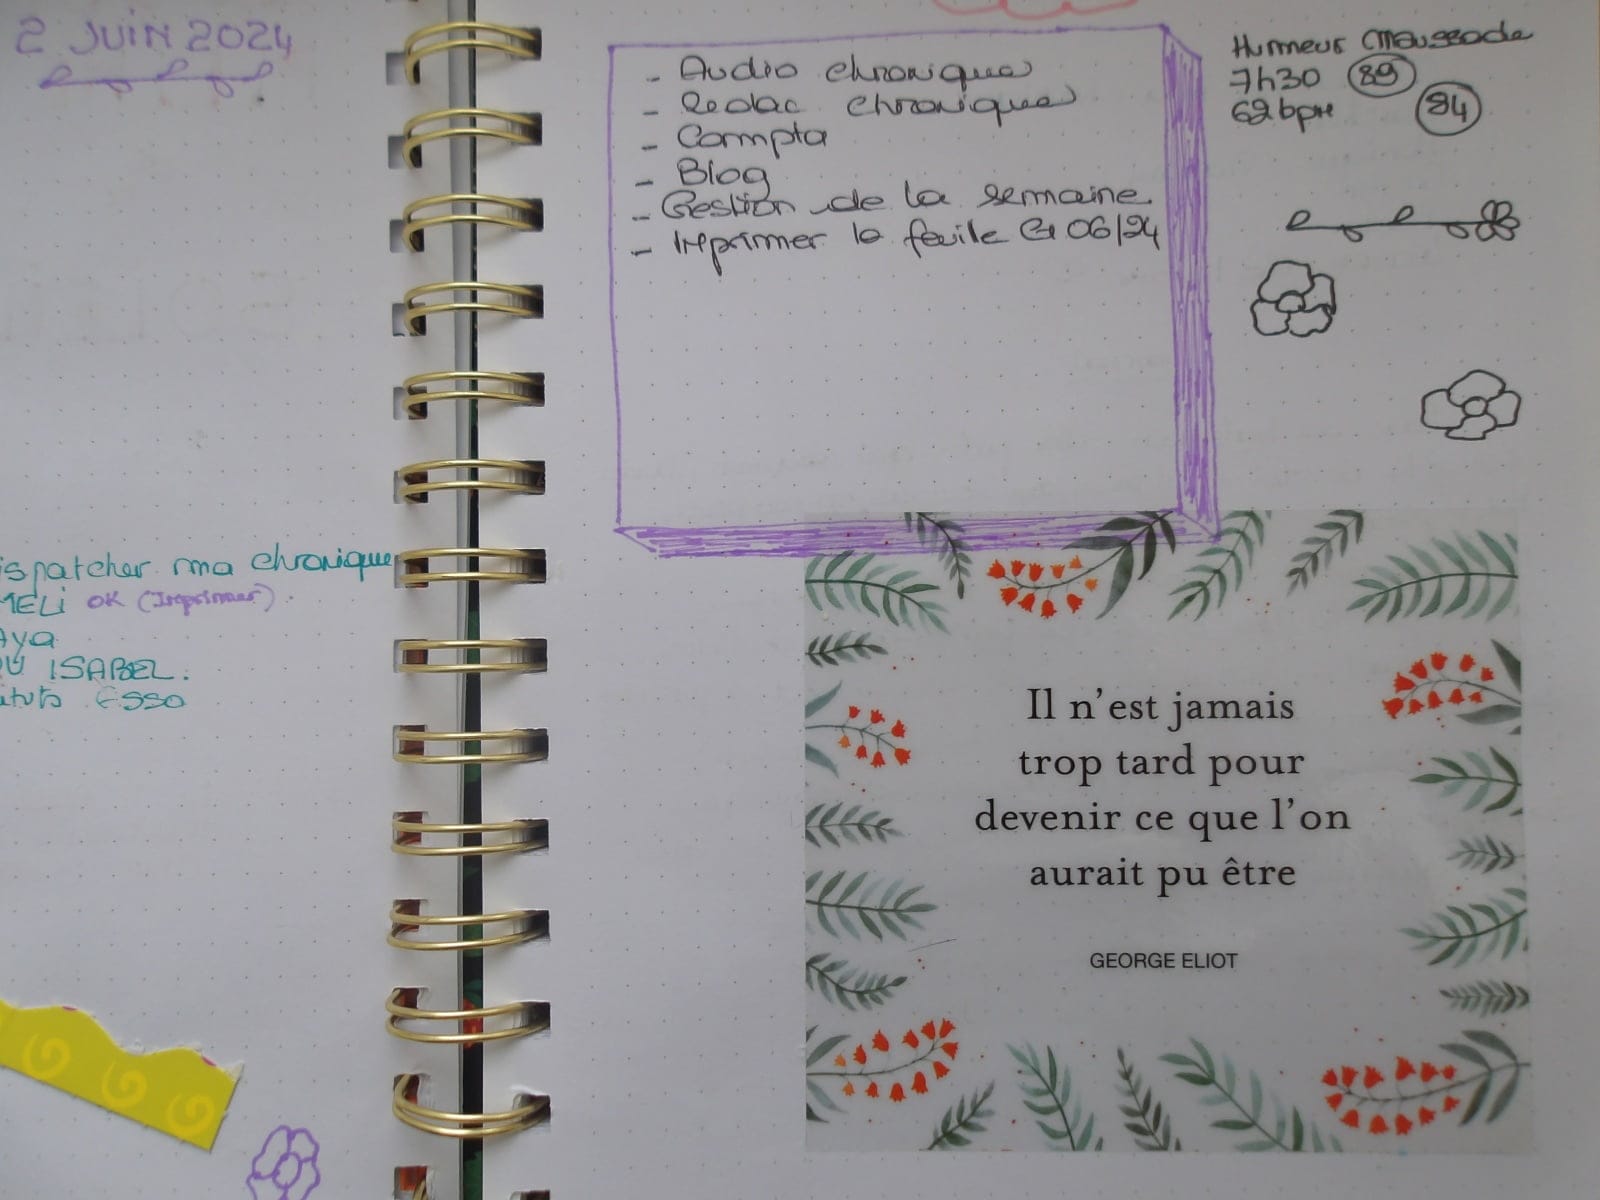 2 JUIN 2024
ispatcher ma chronique
MELI OK (Imprimer).
Aya
OU ISABEL.
ituts ESSO
- Audio chronique
- Redac chronique
- Compta
- Blog
- Gestion de la semaine
- Imprimer la feuile G 06/24
Humeur Maussade
7h30 89
62 bpm 84
Il n'est jamais
trop tard pour
devenir ce que l'on
aurait pu être
GEORGE ELIOT